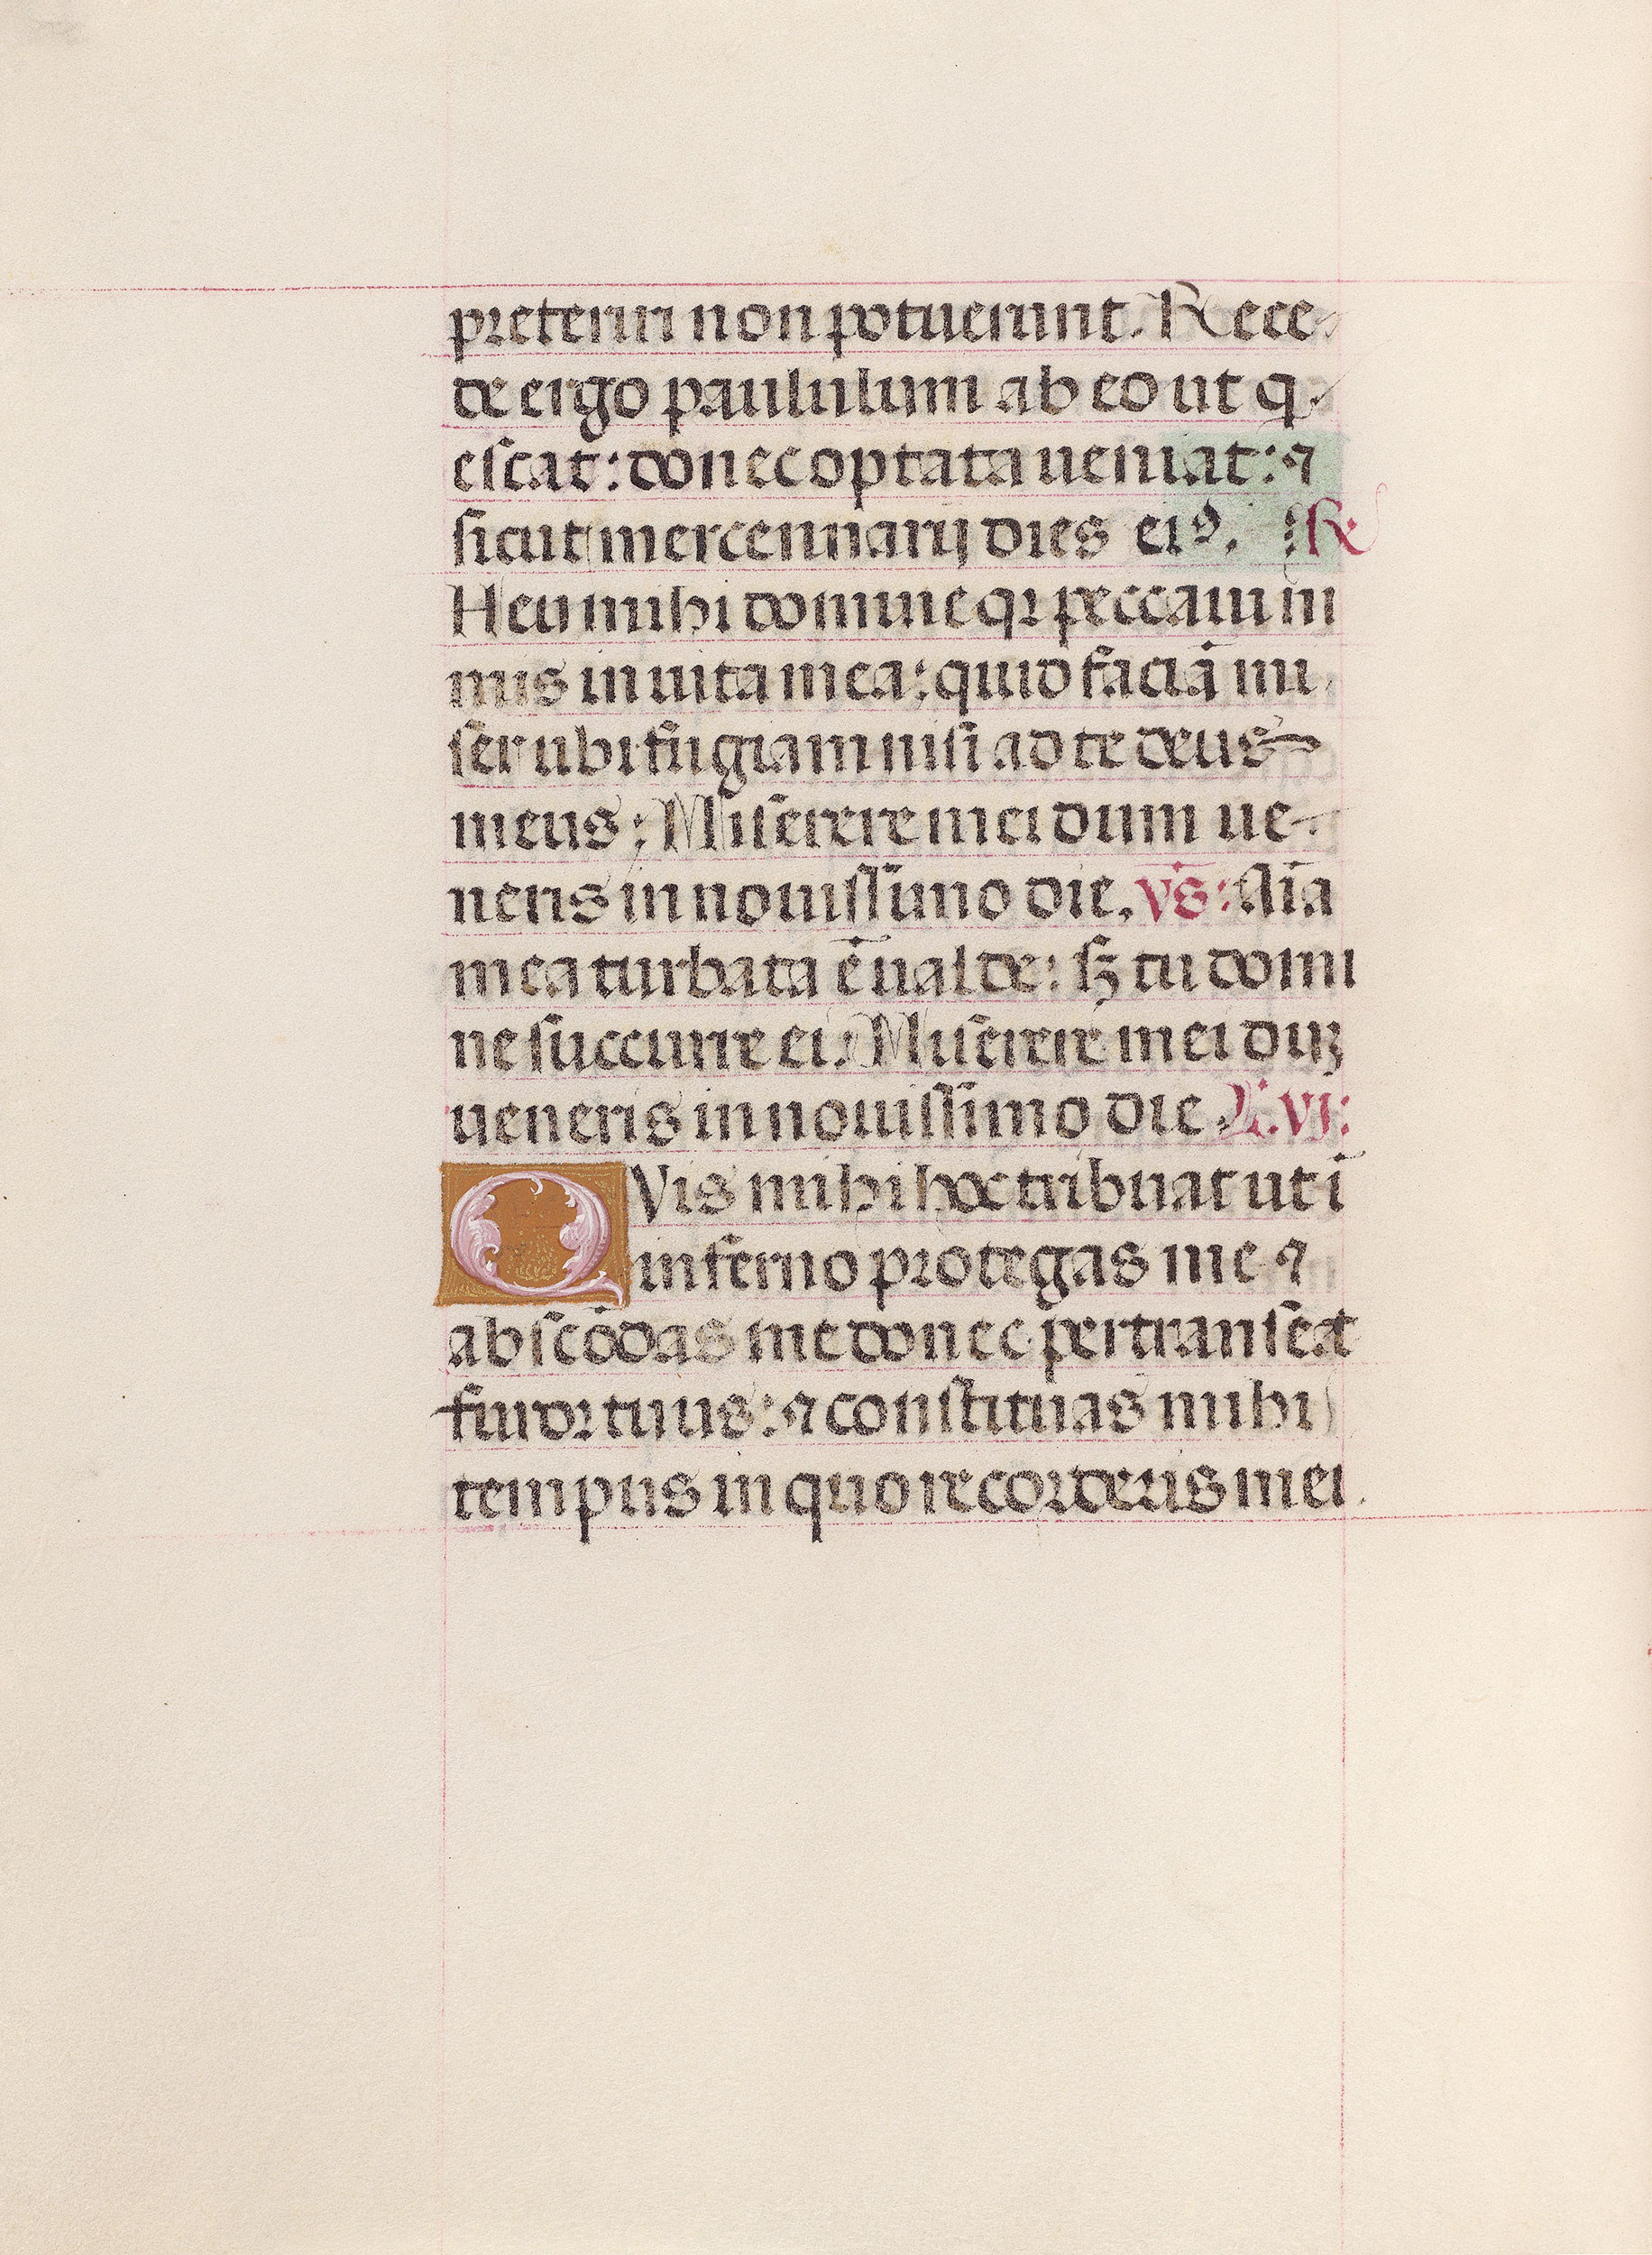 preteriri non potuerunt. Rece
de ergo paululum ab eo ut q
escat: donec optata ueniat: ⁊
sicut mercennarij dies ei⁹. ℟
Heu mihi domine qr peccaui ni
mis in uita mea: quid faciā mi
ser ubi fugiam nisi ad te deus
meus: Miserere mei dum ue
neris in nouissimo die. vs: Aīa
mea turbata ē ualde: sꝫ tu domi
ne succurre ei. Miserere mei duꝫ
ueneris in nouissimo die L. vi:
QVis mihi hoc tribuat ut ī
inferno protegas me ⁊
abscōdas me donec pertranseat
furor tuus: ⁊ constituas mihi
tempus in quo recorderis mei